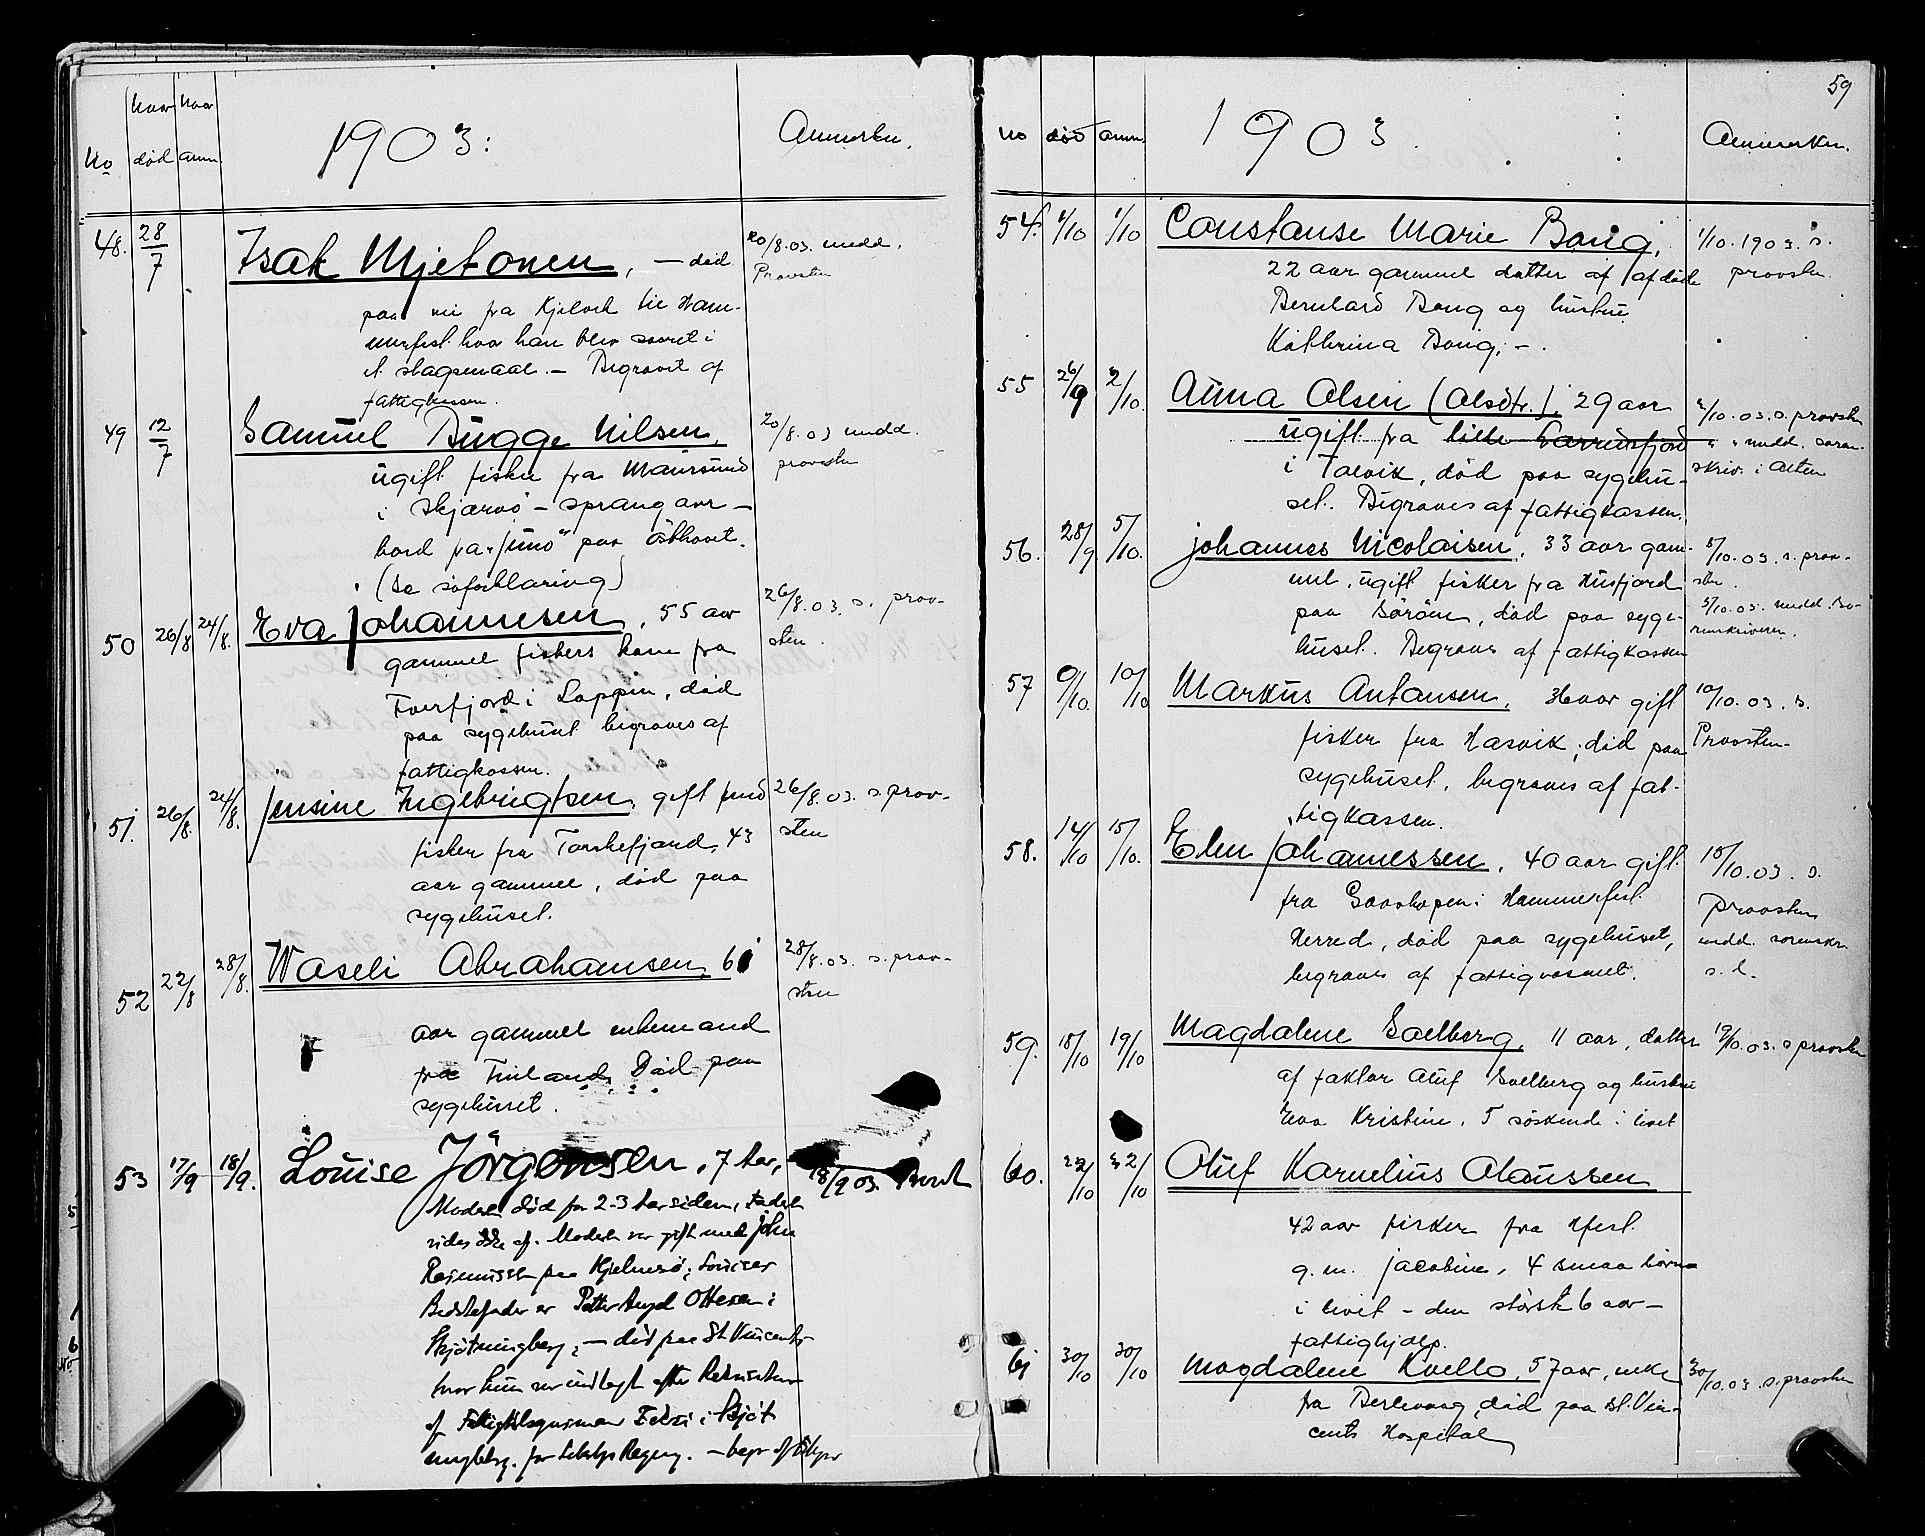 No
Naar død
Naar anm.
1903:
Anmerkn.
48. 28/7 Isak Mjetonen, — død
paa vei fra til Ham-
merfest hvor han blev saaret i
et slagsmaal. — Begravet af
fattigkassen.
20/8.03. medd.
Provsten
49 12/7 Samuel Bugge Nilsen,
ugift fisker fra Maursund
i Skjærvö — sprang over-
bord fra "Juno" paa
(se söforklaring)
20/8.03 medd.
provsten
50 26/8 24/8. Eva Johannesen, 55 aar
gammel fiskers kone fra
i Loppen, død
paa sygehuset begraves af
fattigkassen.
26/8.03. s. prov-
sten.
51. 26/8. 24/8. Jensine Ingebrigtsen, gift med
fisker fra Torskefjord, 43
aar gammel, død paa
sygehuset.
26/8.03. s. prov-
sten
52 22/8 28/8. Waseli Abrahamsen, 61
aar gammel enkemand
fra Finland. Død paa
sygehuset.
28/8.03. s. prov-
sten
53 17/9 18/9. Louise Jörgensen, 7 Aar,
Moderen død for 2-3 Aar siden, Faderen
vides ikke af. Moderen var gift med John
Rasmussen paa Hjelmsö; Louises
Bedstefader er Petter Ottesen i
Skjötningberg, — død paa St Vincents
hvor hun var indlagt efter
af i Skjöt-
ningberg. for Regning. — begr. af
18/9 03.
59
No
død
anm.
1903.
Anmerkn.
54. 1/10 1/10 Constanse Marie Bang,
22 aar gammel datter af afdøde
Bernhard Bang og hustru
Kathrina Bang. —.
1/10. 1903. s.
provsten.
55 26/9 2/10. Anna Olsen (Olsdtr.), 29 aar
ugift fra lille
i Talvik, død paa sygehu-
set. Begraves af fattigkassen.
2/10.03. s. provsten
" " medd. soren-
skriv. i Alten
56. 28/9. 5/10. Johannes Nicolaisen, 33 aar gam-
mel, ugift fisker fra Husfjord
paa Sörøen, død paa syge-
huset. Begraves af fattigkassen
5/10.03. s. prov-
sten.
5/10.03. medd. So-
renskriveren.
57 9/10. 10/10 Markus Antonsen, 36 aar gift
fisker fra Hasvik, død paa
sygehuset, begraves af fat-
tigkassen.
10/10.03. s.
Provsten
58. 14/10 15/10. Elen Johannessen, 40 aar gift
fra i Hammerfest
Herred, død paa sygehuset,
begraves af fattigvæsenet.
15/10.03. s.
provsten
medd. sorenskr.
s. d.
59. 18/10 19/10 Magdalene Solberg, 11 aar, datter
af faktor Oluf Solberg og hustru
Eva Kristine. 5 söskende i livet
19/10.03. s provsten
60. 22/10 22/10 Oluf Kornelius Olaussen
42 aar fisker fra Hfest.
g. m. Jacobine, 4 smaa börn
i livet — den störste 6 aar —
fattighjælp.
61 30/10 30/10 Magdalene Kvello, 57 aar, enke
fra Berlevaag, død paa St. Vin-
cents Hospital
30/10.03 s. provsten